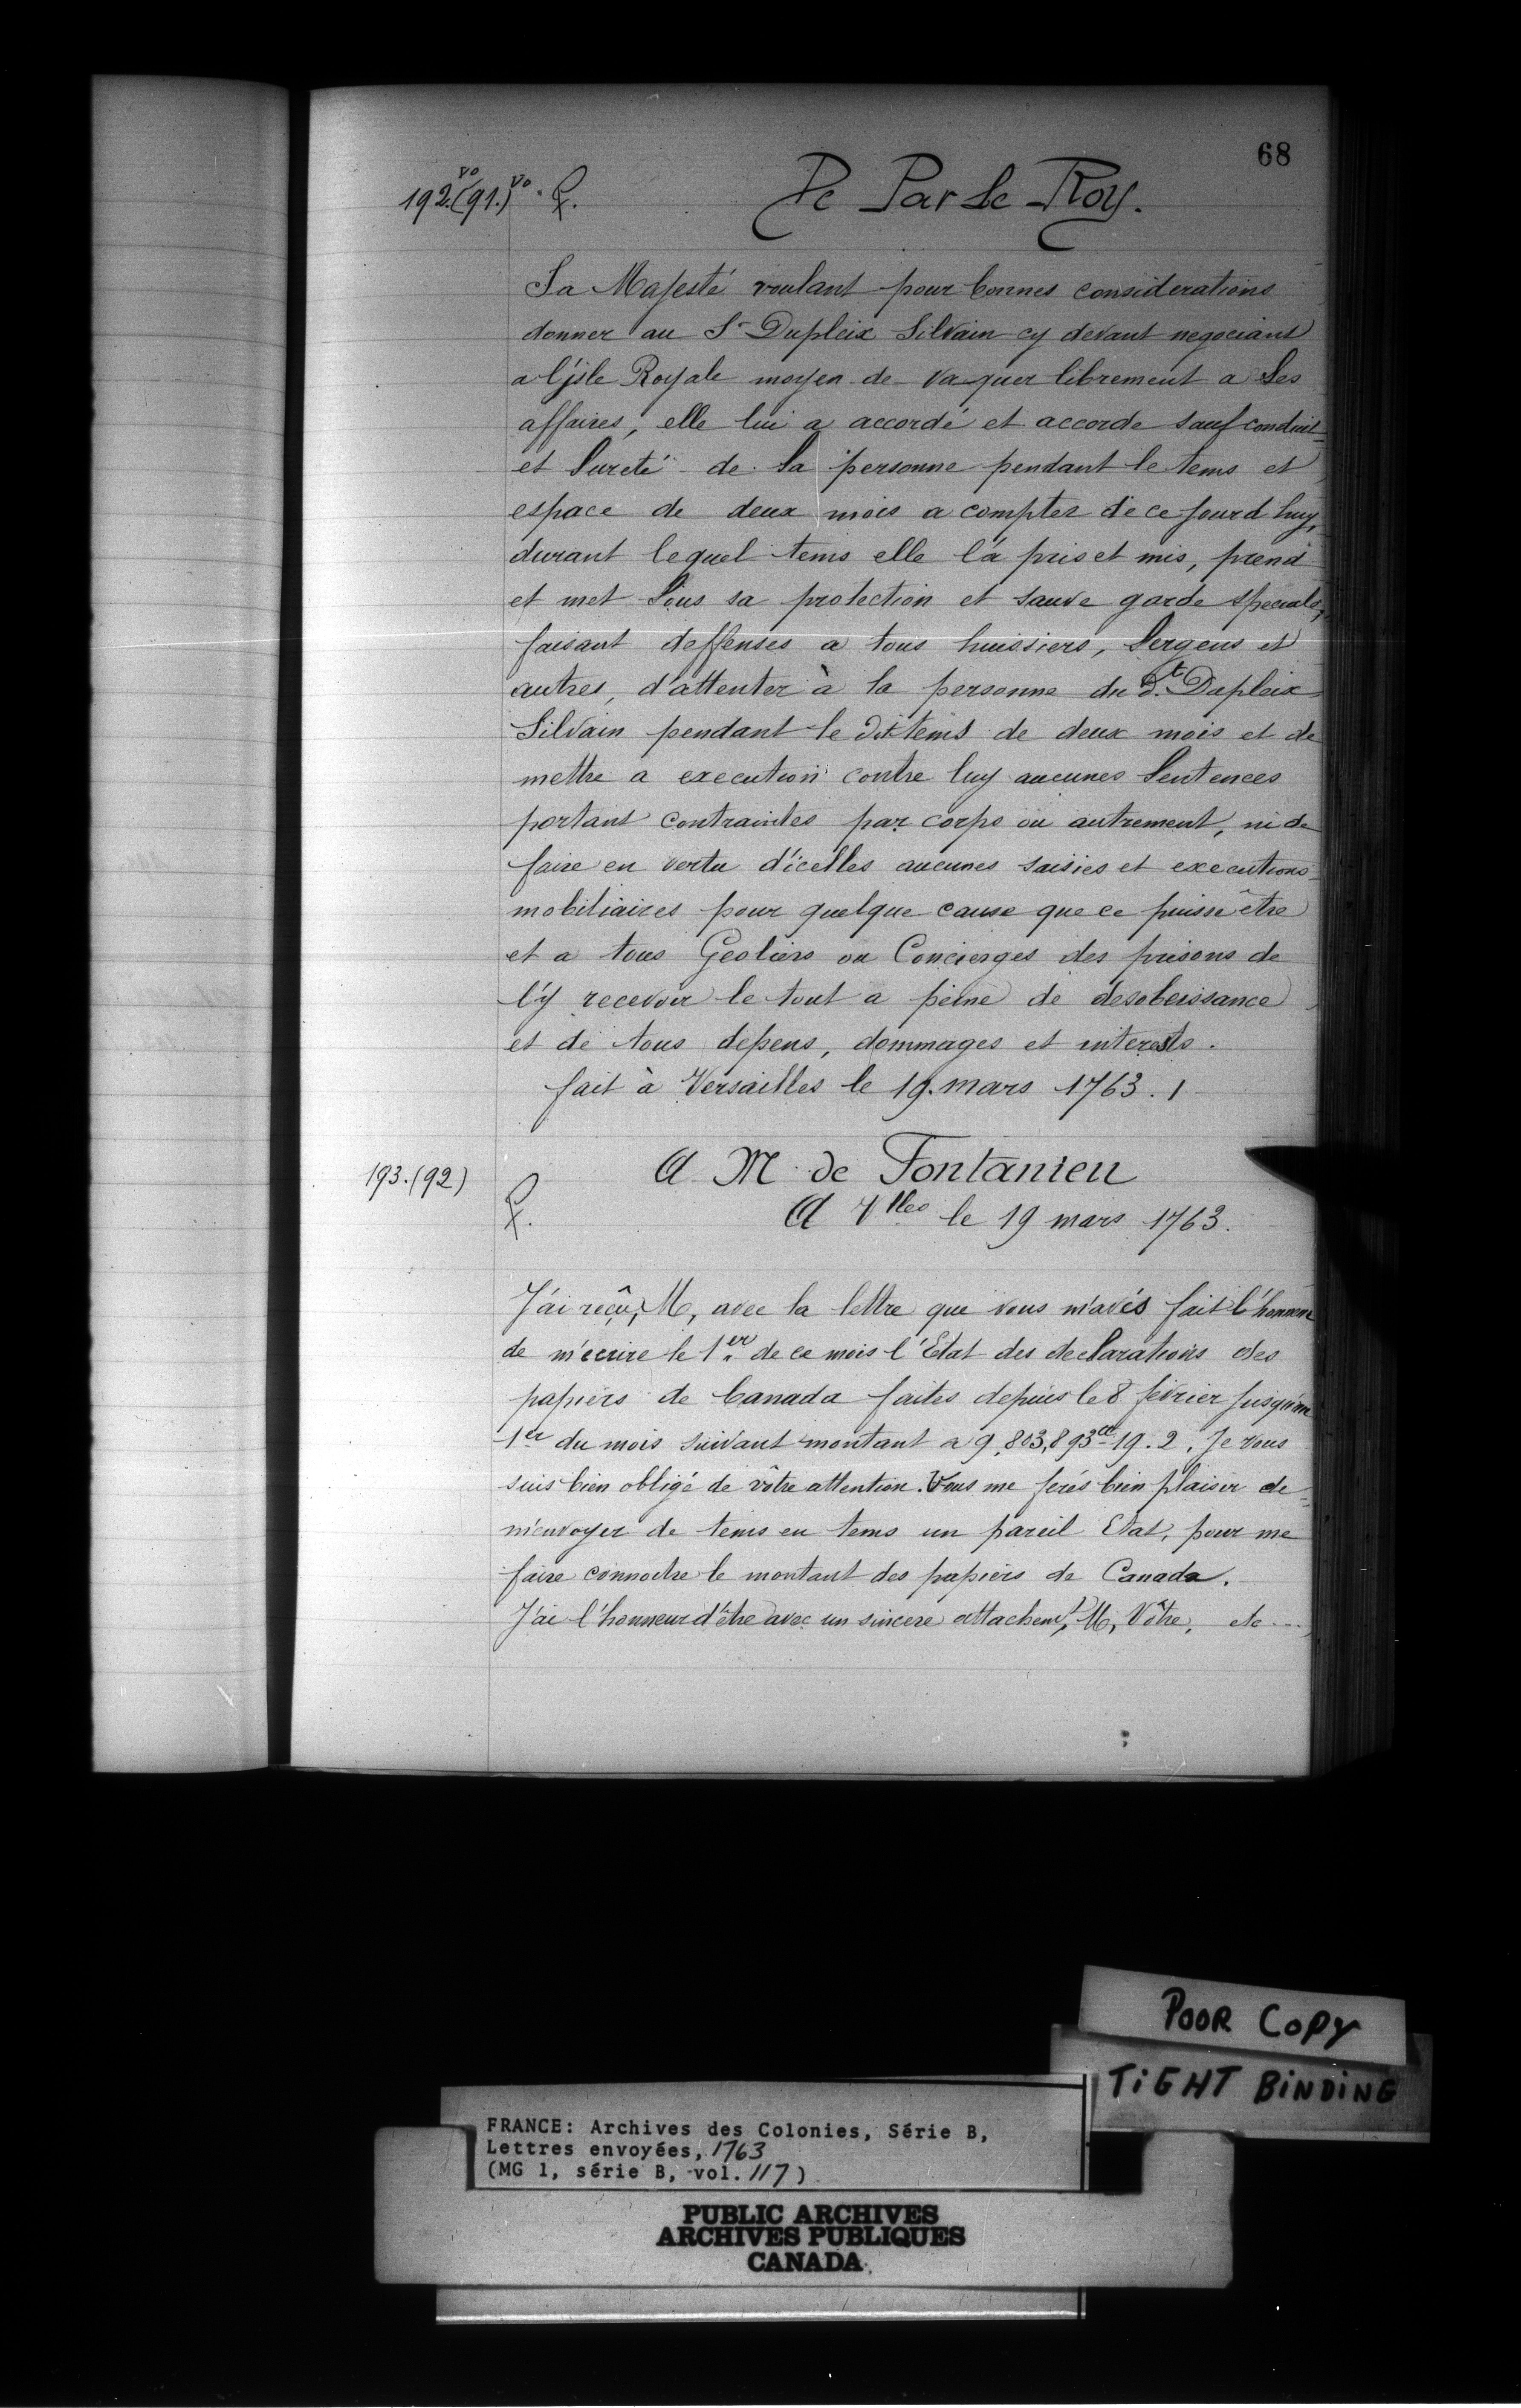 68
192.vo (91.)vo. De Par Le Roy.
Sa Majesté voulant pour bonnes considerations
donner au Sr Dupleix Silvain cy devant negociant
a l'jsle Royale moyen de vaquer librement a Ses
affaires, elle lui a accordé et accorde sauf conduit
et Sureté de Sa personne pendant le tems et
espace de deux mois a compter de ce jourd huy,
durant lequel tems elle l'a pris et mis, prend
et met Sous sa protection et sauve garde speciale,
faisant deffenses a tous huissiers, Sergens et
autres, d'attenter à la personne du d.t Dupleix
Silvain pendant le dit tems de deux mois et de
mettre a execution contre luy aucunes Sentences
portant contraintes par corps ou autrement, ni de
faire en vertu d'icelles aucunes saisies et executions
mobiliaires pour quelque cause que ce puisse être
et a tous Geoliers ou Concierges des prisons de
l'y recevoir le tout a peine de desobeissance
et de tous depens, dommages et interests.
fait à Versailles le 19. mars 1763.
193. (92) A M de Fontanieu
A Vlles le 19 mars 1763.
J'ai reçû, M, avec la lettre que vous m'avés fait l'honneur
de m'ecrire le 1er de ce mois l'Etat des declarations des
papiers de Canada faites depuis le 8 février jusqu'au
1er du mois suivant montant a 9,803,893tt 19.2. Je vous
suis bien obligé de vôtre attention. Vous me ferés bien plaisir de
m'envoyer de tems en tems un pareil Etat, pour me
faire connoitre le montant des papiers de Canada.
J'ai l'honneur d'être avec un sincere attachemt, M, Vôtre, etc...
POOR COPY
TiGHT BiNDiNG
FRANCE: Archives des Colonies, Série B,
Lettres envoyées, 1763
(MG 1, série B, vol. 117)
PUBLIC ARCHIVES
ARCHIVES PUBLIQUES
CANADA